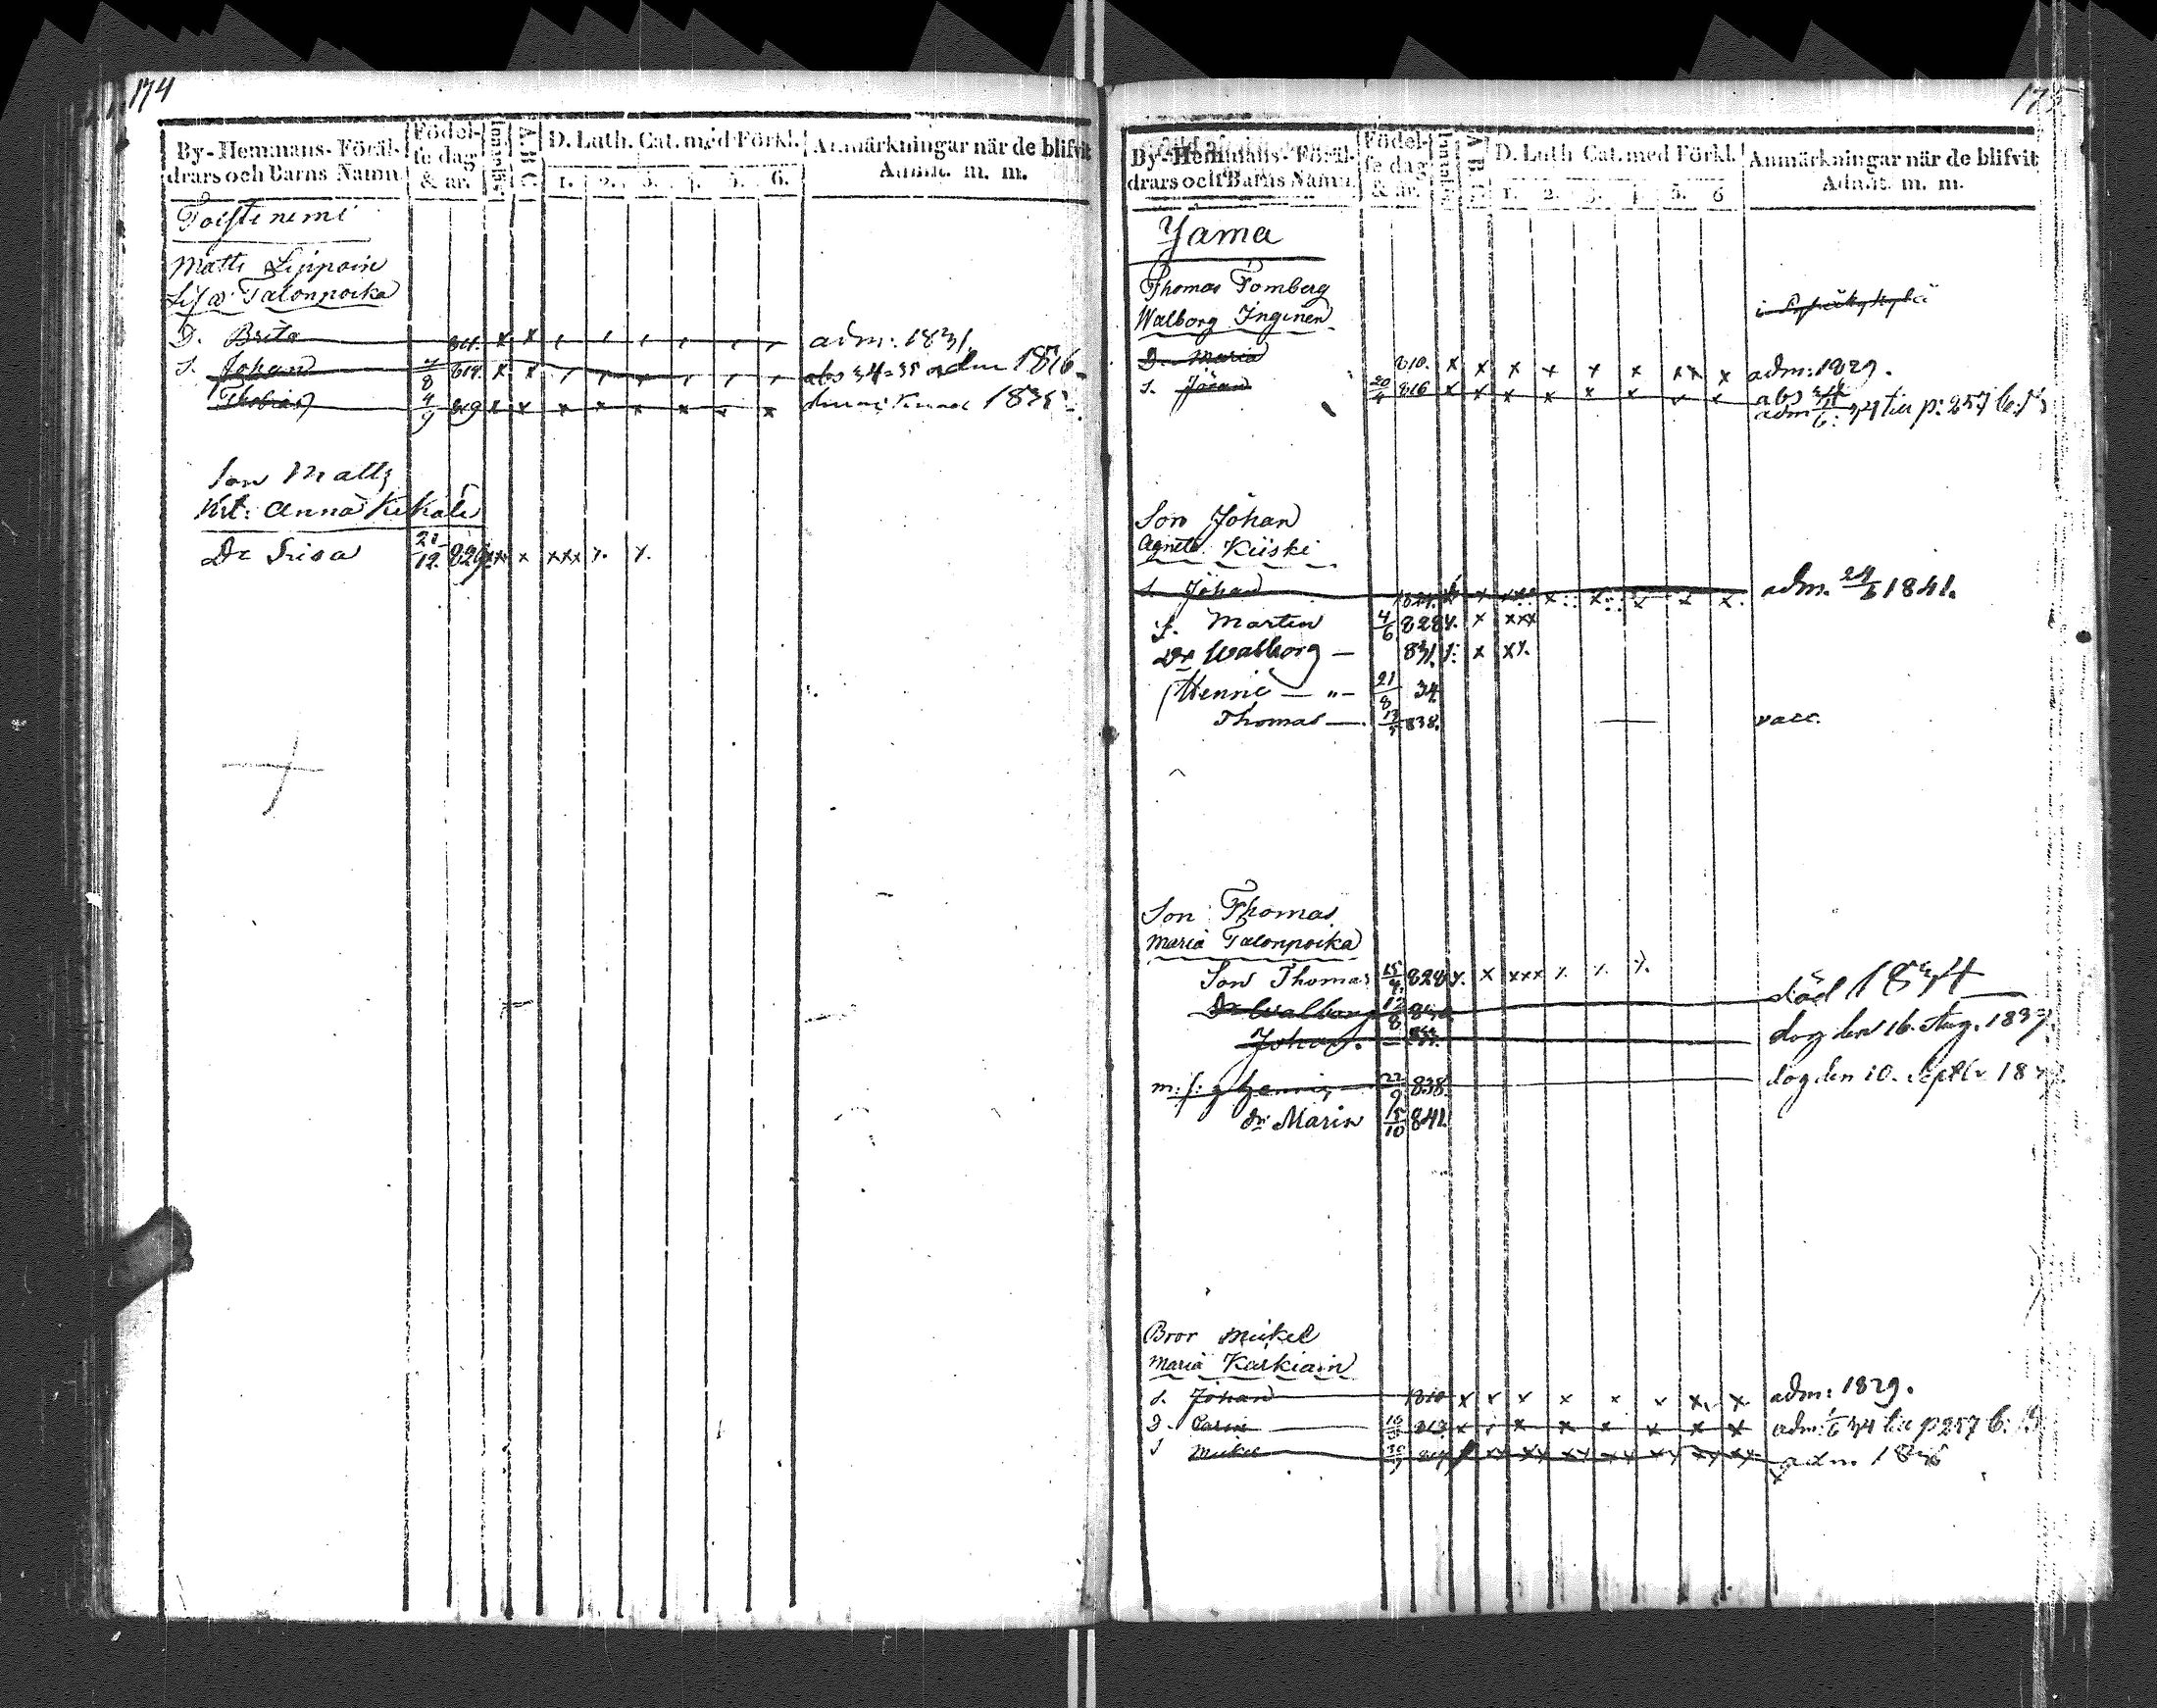 174
By-Hemmans-Föräl-
drars och Barns Namn.
Födel-
se dag
& år.
Innanläs:
A.B.C.
D. Luth. Cat. med Förkl.
1. 2. 3. 4. 5. 6.
Anmärkningar när de blifvit
Admit. m. m.
Toistinemi
Matts Lippoin
Lisa Talonpoika
D. Brita 811. x x adm: 1831.
S. Johan 7/8 814. x x abs 34=35 adm 1836
Thobias 4/9 819 x x x x x x x x 1835
Son Matts
Kit: Anna Kekäle
Dr Lisa 21/12. 829. xx x xxx x. x.
175
By-Hemmans-Föräl-
drars och Barns Namn.
Födel-
se dag
& år.
Innanläs:
A.B.C.
D. Luth Cat. med Förkl.
1. 2. 3. 4. 5. 6
Anmärkningar när de blifvit
Admit. m. m.
Yama
Thomas Tomberg
Walborg Inginen
D. Maria 810. x x x x x x xx x adm: 1829.
S. Jöran 20/4 816 x x x x x x abs
adm 6. 34 p: 257
Son Johan
Agneta Kiiski
S. Johan x x adm. 24/6 1841.
S. Martin 4/6 828 x. x xxx
Dr Walborg — 831. x xx.
Henric — „ — 21/8 34
Thomas — 838. — vacc.
Son Thomas
Maria Talonpoika
Son Thomas 15/4 828 x. x xxx x. x. x.
Dr Walborg 12/8 död 1834
Johan. dog den 16. Aug. 1837.
m: f: Henric 22/9 838. dog den 10. Septbr
dr Maria 15/10 841.
Bror Mickel
Maria Karkiain
S. Johan 1810 x x x x x x x x adm: 1829.
D. Carin 813 x x x x x x x x adm: 34 p 257
S Mickel xx xx xx xx xx xx xx adm. 1836